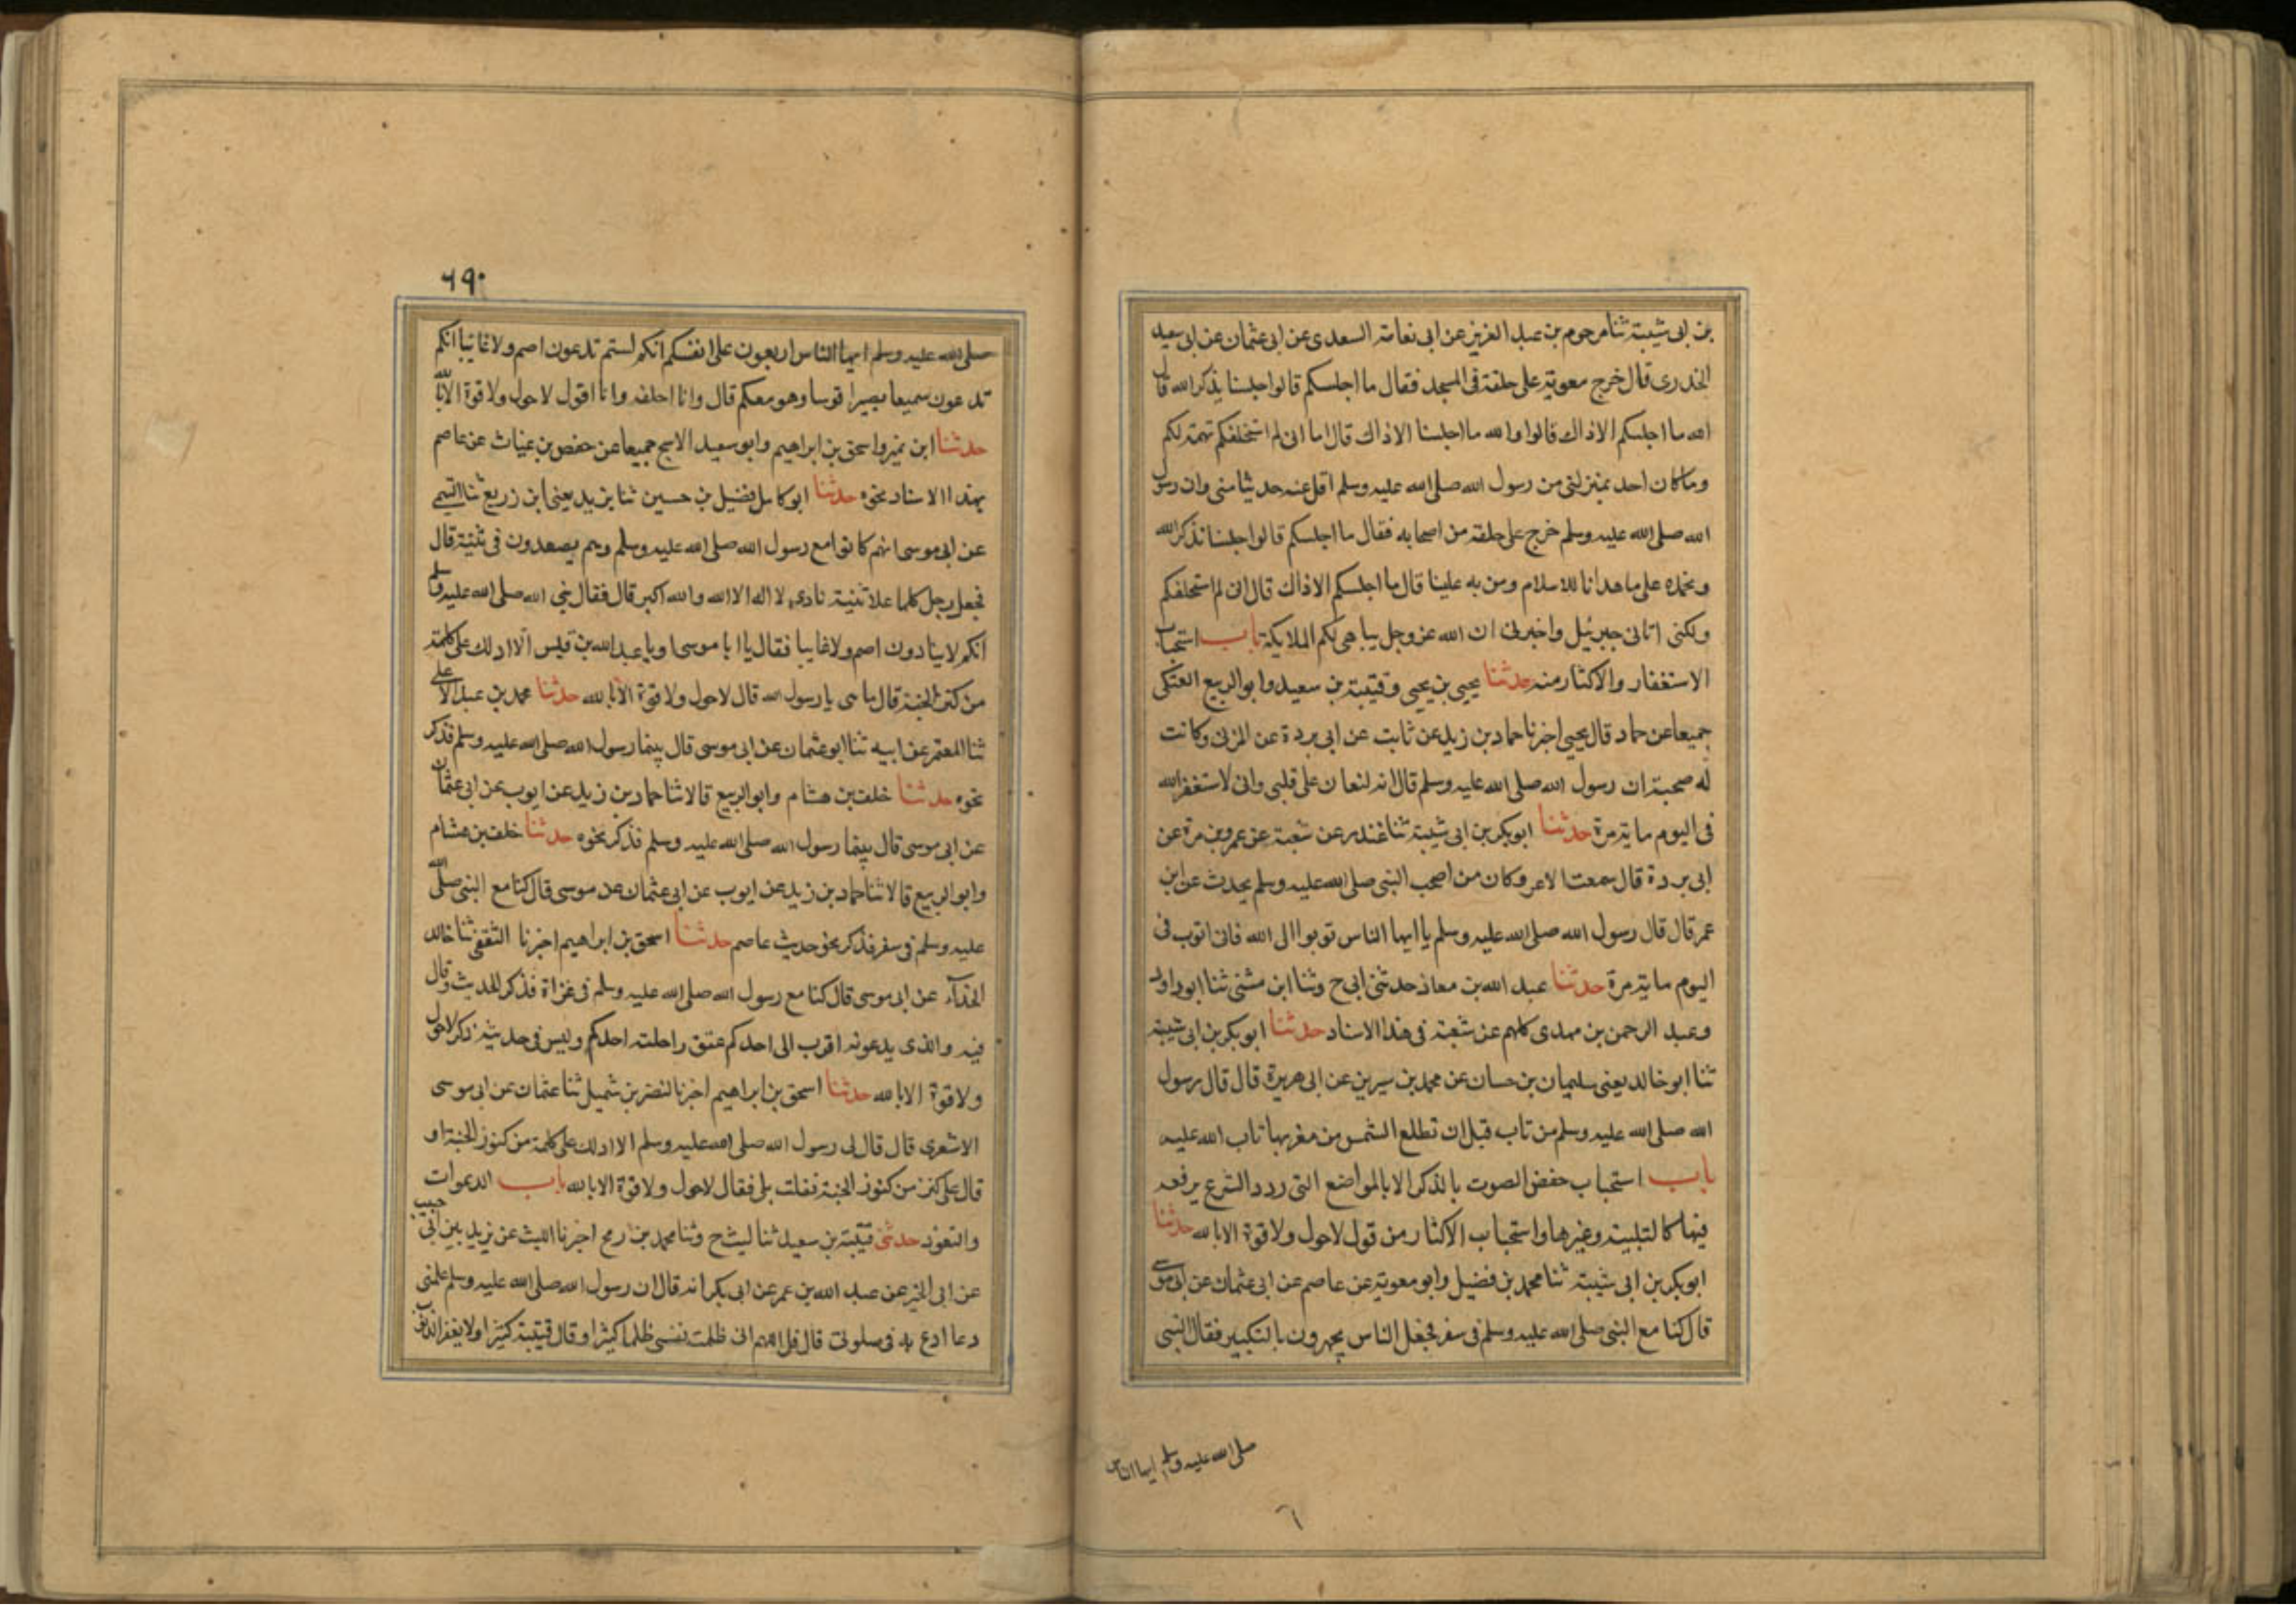 بن ابى شيبة ثنا مرحوم بن عبد العزيز عن ابى نعامة السعدى عن ابى عثمان عن ابى سعيد
الخدرى قال خرج معوية على حلقة فى المسجد فقال ما اجلسكم قالوا جلسنا نذكر الله قال
الله ما اجلسكم الا ذاك قالوا والله ما اجلسنا الا ذاك قال اما انى لم استحلفكم تهمة لكم
وما كان احد بمنزلتى من رسول الله صلى الله عليه وسلم اقل عنه حديثا منى وان رسول
الله صلى الله عليه وسلم خرج على حلقة من اصحابه فقال ما اجلسكم قالوا جلسنا نذكر الله
ونحمده على ما هدانا للاسلام ومن به علينا قال ما اجلسكم الا ذاك قال انى لم استحلفكم
ولكنى اتانى جبرئيل واخبرنى ان الله عز وجل يباهى بكم الملايكة باب استحباب
الاستغفار والاكثار منه حدثنا يحيى بن يحيى وقتيبة بن سعيد وابو الربيع العتكى
جميعا عن حماد قال يحيى اخبرنا حماد بن زيد عن ثابت عن ابى بردة عن المزنى وكانت
له صحبة ان رسول الله صلى الله عليه وسلم قال انه لنعان على قلبى وانى لاستغفر الله
فى اليوم ماية مرة حدثنا ابو بكر بن ابى شيبة ثنا غندر عن شعبة عن عمرو بن مرة عن
ابى بردة قال سمعت الاعر وكان من اصحب النبى صلى الله عليه وسلم يحدث عن ابن
عمر قال قال رسول الله صلى الله عليه وسلم يا ايها الناس توبوا الى الله فانى اتوب فى
اليوم ماية مرة حدثنا عبد الله بن معاذ حدثنى ابى ح وثنا ابن مثنى ثنا ابو داود
وعبد الرحمن بن مهدى كلهم عن شعبة فى هذا الاسناد حدثنا ابو بكر بن ابى شيبة
ثنا ابو خالد يعنى سليمان بن حسان عن محمد بن سيرين عن ابى هريرة قال قال رسول
الله صلى الله عليه وسلم من تاب قبل ان تطلع الشمس من مغربها تاب الله عليه
باب استحباب خفض الصوت بالذكر الا بالمواضع التى ورد الشرع برفعه
فيها كالتلبية وغيرها واستحباب الاكثار من قول لا حول ولا قوة الا بالله حدثنا
ابو بكر بن ابى شيبة ثنا محمد بن فضيل وابو معوية عن عاصم عن ابى عثمان عن ابى موسى
قال كنا مع النبى صلى الله عليه وسلم فى سفر فجعل الناس يجهرون بالتكبير فقال النبى
صلى الله عليه وسلم ايها الناس
٦
٦٩٠
صلى الله عليه وسلم ايها الناس اربعون على انفسكم انكم لستم تدعون اصم ولا غايبا انكم
تدعون سميعا بصيرا قريبا وهو معكم قال وانا اخلفه وانا اقول لا حول ولا قوة الا بالله
حدثنا ابن نمير واسحق بن ابراهيم وابو سعيد الاشج جميعا عن حفص بن غياث عن عاصم
بهذا الاسناد نحوه حدثنا ابو كامل فضيل بن حسين ثنا يزيد يعنى ابن زريع ثنا التيمى
عن ابى موسى انهم كانوا مع رسول الله صلى الله عليه وسلم وهم يصعدون فى ثنية قال
فجعل رجل كلما علا ثنية نادى لا اله الا الله والله اكبر قال فقال نبى الله صلى الله عليه وسلم
انكم لا ينادون اصم ولا غايبا فقال يا ابا موسى او يا عبد الله بن قيس الا ادلك على كلمة
من كنز الجنة قال ما هى يا رسول الله قال لا حول ولا قوة الا بالله حدثنا محمد بن عبد الاعلى
ثنا المعتمر عن ابيه ثنا ابو عثمان عن ابى موسى قال بينما رسول الله صلى الله عليه وسلم فذكر
نحوه حدثنا خلف بن هشام وابو الربيع قالا ثنا حماد بن زيد عن ايوب عن ابى عثمان
عن ابى موسى قال بينما رسول الله صلى الله عليه وسلم فذكر نحوه حدثنا خلف بن هشام
وابو الربيع قالا ثنا حماد بن زيد عن ايوب عن ابى عثمان عن موسى قال كنا مع النبى صلى الله
عليه وسلم فى سفر فذكر نحو حديث عاصم حدثنا اسحق بن ابراهيم اخبرنا الثقفى ثنا خالد
الحذآء عن ابى موسى قال كنا مع رسول الله صلى الله عليه وسلم فى غزاة فذكر الحديث وقال
فيه والذى يدعونه اقرب الى احدكم عنق راحلة احدكم وليس فى حديثه ذكر لا حول
ولا قوة الا بالله حدثنا اسحق بن ابراهيم اخبرنا لنضر بن شميل ثنا عثمان عن ابى موسى
الاشعرى قال قال لى رسول الله صلى الله عليه وسلم الا ادلك على كلمة من كنوز الجنة او
قال على كنز من كنوز الجنة فقلت بلى فقال لا حول ولا قوة الا بالله باب الدعوات
والتعوذ حدثنى قتيبة بن سعيد ثنا ليث ح وثنا محمد بن رمح اخبرنا الليث عن يزيد بن ابى حبيب
عن ابى الخير عن عبد الله بن عمر عن ابى بكر انه قال ان رسول الله صلى الله عليه وسلم علمنى
دعا ادع به فى صلوتى قال قل اللهم انى ظلمت نفسى ظلما كثيرا وقال قتيبة كبيرا ولا يغفر الذنوب